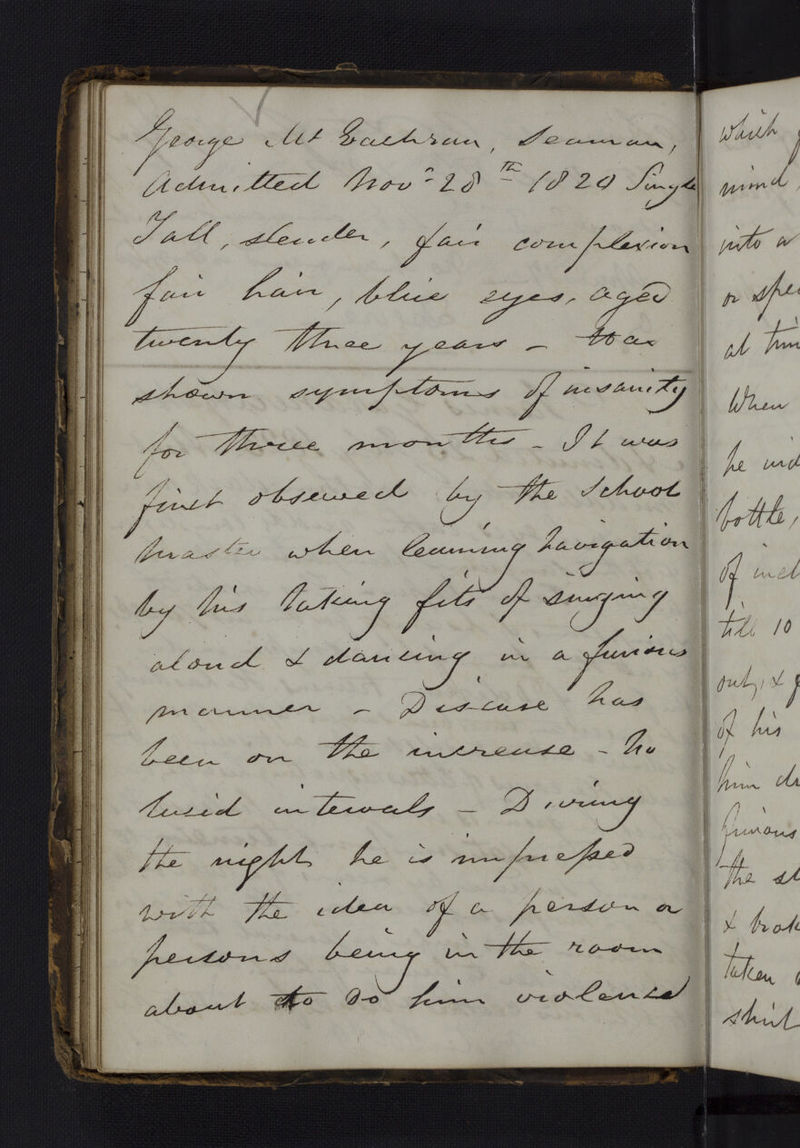 George Mc Eachran, Seaman,
Admitted Novr 28th 1820 Single
Tall, slender, fair complexion
fair hair, blue eyes, aged
twenty three years - Has
shewn symptoms of insanity
for three months - It was
first observed by the School
master when learning Navigation
by his taking fits of singing
aloud & dancing in a furious
manner - Disease has
been on the increase - No
lucid intervals - During
the night he is impressed
with the idea of a person or
persons being in the room
about to do him violence
which
mind
into a
or
at
When
he
bottle,
of
till 10
out, &
of his
him
furious
the
&
taken
shirt